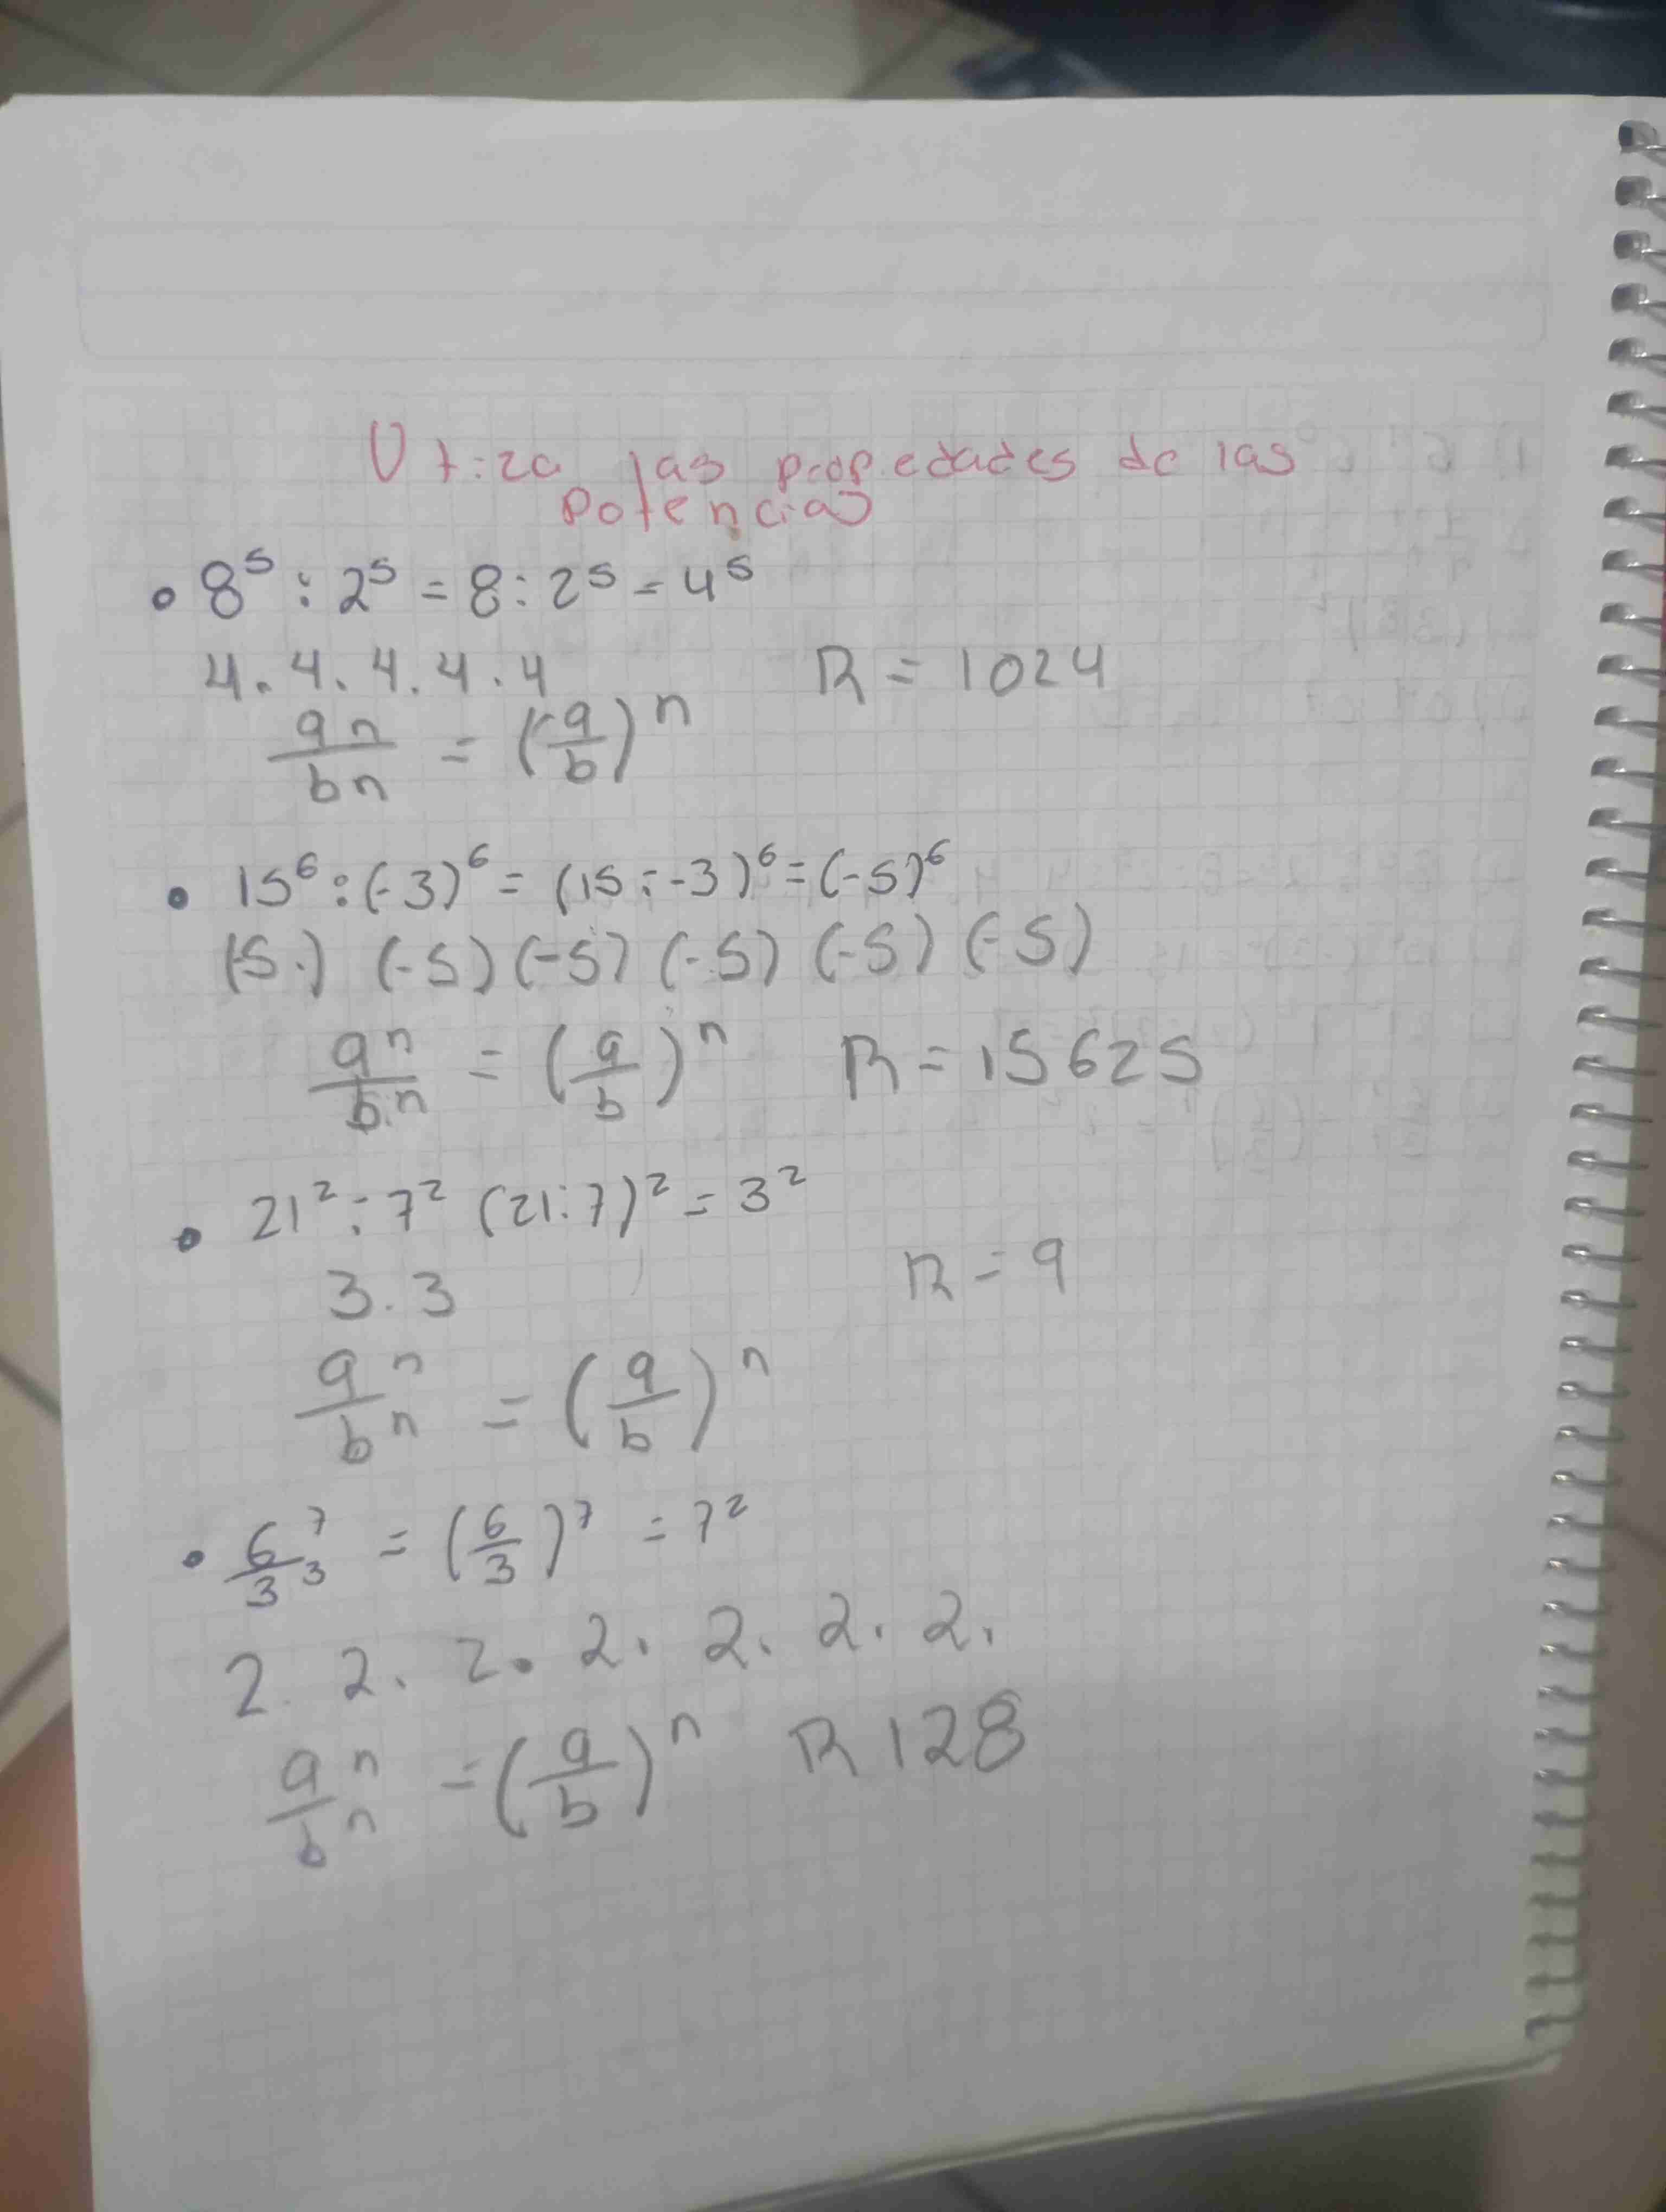 Utiza las propedades de las
potencias
• 8⁵ : 2⁵ = 8 : 2⁵ = 4⁵
4 . 4 . 4 . 4 . 4 R = 1024
an/bn = (a/b)ⁿ
• 15⁶ : (-3)⁶ = (15 : -3)⁶ = (-5)⁶
(-5.) (-5) (-5) (-5) (-5) (-5)
aⁿ/bⁿ = (a/b)ⁿ R = 15625
• 21² : 7² (21 : 7)² = 3²
3 . 3 R = 9
aⁿ/bⁿ = (a/b)ⁿ
• 6⁷/3³ = (6/3)⁷ = 7²
2 . 2 . 2 . 2 . 2 . 2 . 2 .
aⁿ/bⁿ = (a/b)ⁿ R 128